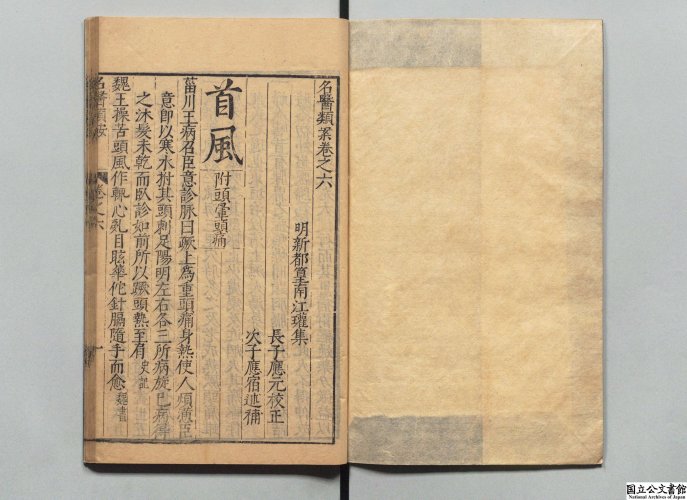 名醫類案卷之六
明新都篁南江瓘集
長子應元校正
次子應宿述補
首風 附頭暈頭痛
菑川王病召臣意診脉曰蹶上為重頭痛身熱使人煩懣臣
意即以寒水拊其頭刺足陽明左右各三所病旋已病得
之沐髮未乾而臥診如前所以蹶頭熱至肩 史記
魏王操苦頭風作輒心亂目眩華佗針膈隨手而愈 魏書
名醫類案 卷之六 一
国立公文書館
National Archives of Japan